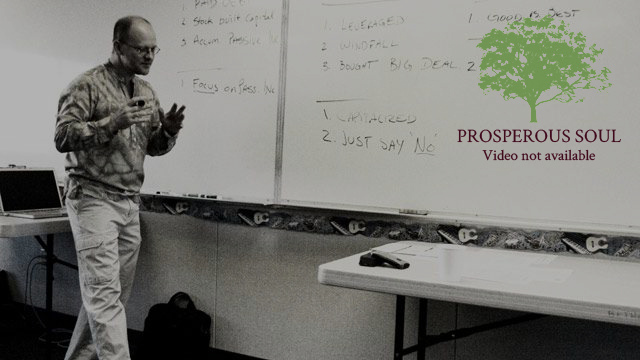 1. PAID OFF
2. Stock built Capital
3. Accum. Passive Inc
1. Focus on Pass. Inc
1. LEVERAGED
2. WINDFALL
3. BOUGHT BIG DEAL.
1. CAPITALIZED
2. JUST SAY 'NO'
1. GOOD is BEST
2.
PROSPEROUS SOUL
Video not available